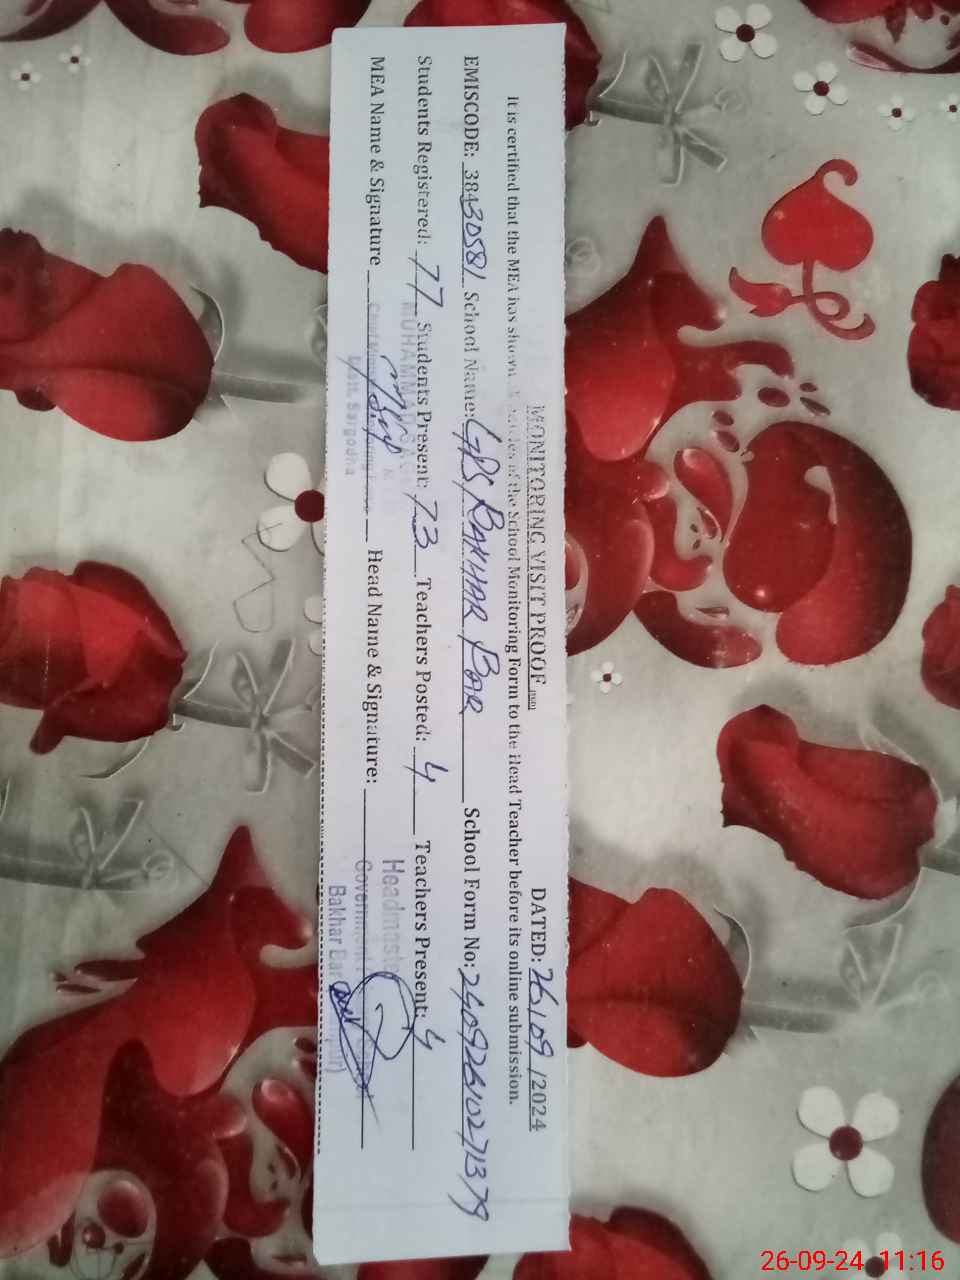 MONITORING VISIT PROOF DATED: 26/09/2024
It is certified that the MEA has shown of the School Monitoring Form to the Head Teacher before its online submission.
EMISCODE: 38430581 School Name: GPS, BAKHAR BAR School Form No: 24092610271379
Students Registered: 77 Students Present: 73 Teachers Posted: 4 Teachers Present: 4
MEA Name & Signature Head Name & Signature:
MUHAMMAD
Distt. Sargodha
Headmaster
Government
Bakhar Bar
26-09-24 11:16